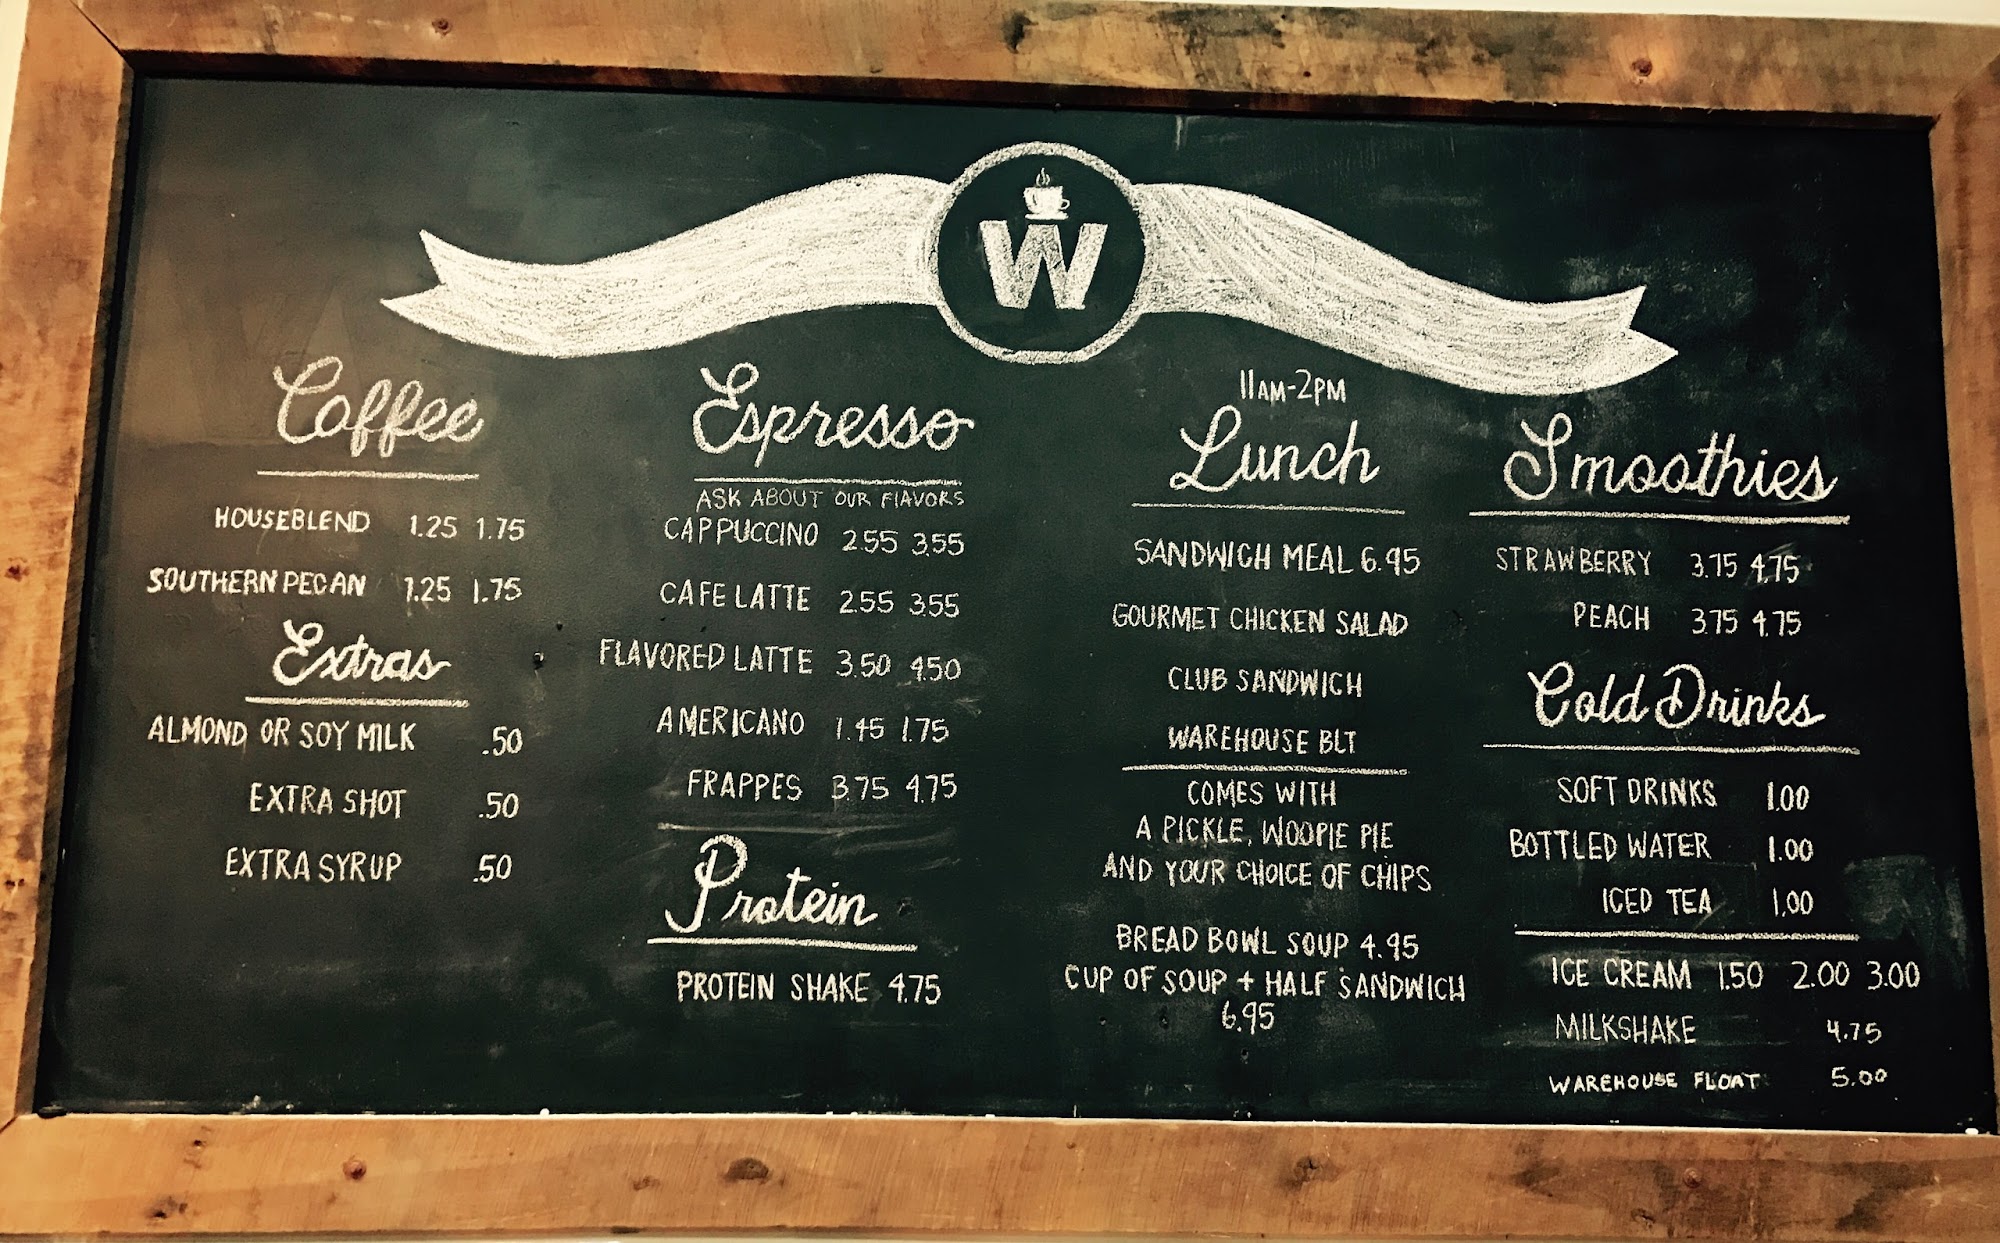 W
Coffee
HOUSEBLEND 1.25 1.75
SOUTHERN PECAN 1.25 1.75
Extras
ALMOND OR SOY MILK .50
EXTRA SHOT .50
EXTRA SYRUP .50
Espresso
ASK ABOUT OUR FLAVORS
CAPPUCCINO 2.55 3.55
CAFE LATTE 2.55 3.55
FLAVORED LATTE 3.50 4.50
AMERICANO 1.45 1.75
FRAPPES 3.75 4.75
Protein
PROTEIN SHAKE 4.75
11AM-2PM
Lunch
SANDWICH MEAL 6.95
GOURMET CHICKEN SALAD
CLUB SANDWICH
WAREHOUSE BLT
COMES WITH
A PICKLE, WOOPIE PIE
AND YOUR CHOICE OF CHIPS
BREAD BOWL SOUP 4.95
CUP OF SOUP + HALF SANDWICH
6.95
Smoothies
STRAWBERRY 3.75 4.75
PEACH 3.75 4.75
Cold Drinks
SOFT DRINKS 1.00
BOTTLED WATER 1.00
ICED TEA 1.00
ICE CREAM 1.50 2.00 3.00
MILKSHAKE 4.75
WAREHOUSE FLOAT 5.00